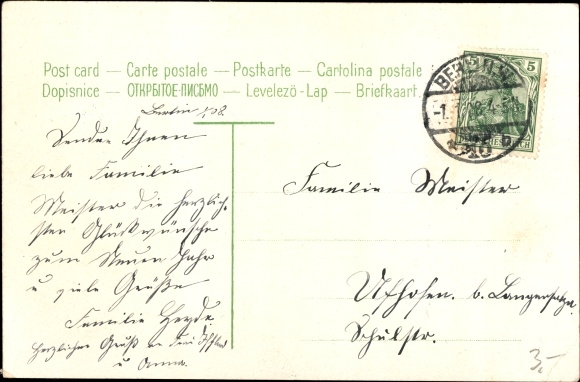 Post card — Carte postale — Postkarte — Cartolina postale
Dopisnice — ОТКРЫТОЕ ПИСЬМО — Levelező-Lap — Briefkaart.
Berlin 1/1 08.
Sende Ihnen
liebe Familie
Meister die herzlich-
sten Glückwünsche
zum Neuen Jahr
u viele Grüße
Familie Heyde.
Herzlichen Gruß an
u Anna.
Familie Meister
Ufhofen. b. Langensalza.
Schulstr.
BERLIN
5 5
3.-